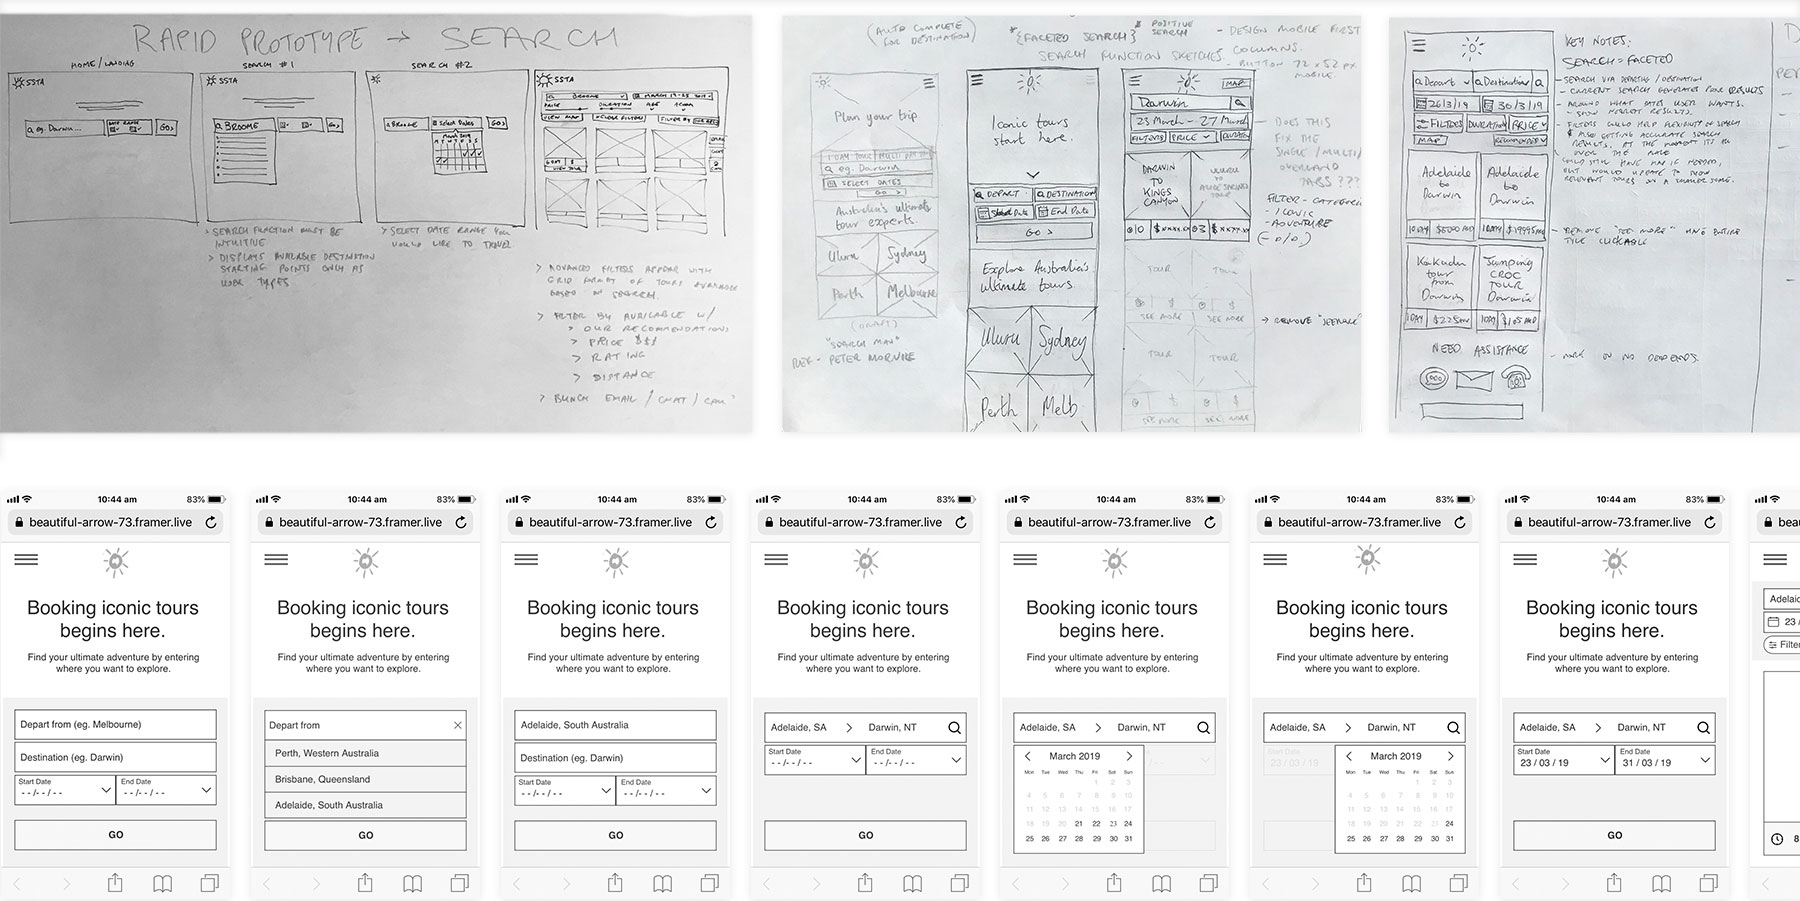 RAPID PROTOTYPE → SEARCH
HOME / LANDING
SSTA
eg. Darwin...
DATE RANGE
GO>
SEARCH #1
SSTA
BROOME
GO>
> SEARCH FUNCTION MUST BE
INTUITIVE
> DISPLAYS AVAILABLE DESTINATION
STARTING POINTS ONLY AS
USER TYPES.
SEARCH #2
BROOME
Select Dates
GO>
> SELECT DATE RANGE YOU
WOULD LIKE TO TRAVEL
SSTA
BROOME
PRICE
DURATION
VIEW MAP
VIEW TOUR
> ADVANCED FILTERS APPEAR WITH
GRID FORMAT OF TOURS AVAILABLE
BASED ON SEARCH.
> FILTER BY AVAILABLE W/
> OUR RECOMMENDATIONS
> PRICE $$$
> RATING
> DISTANCE
> BUNCH EMAIL / CHAT / CALL
(AUTO COMPLETE
FOR DESTINATION)
*{FACETED SEARCH}
* POSITIVE
SEARCH
- DESIGN MOBILE FIRST
SEARCH FUNCTION SKETCHES.
COLUMNS.
BUTTON 72 x 52 px
MOBILE.
Plan your trip
eg. Darwin
SELECT DATES
GO >
Australia's ultimate
tour experts.
Uluru
Sydney
Perth
Melbourne
(DRAFT)
"SEARCH MAP"
REF - PETER MORVILLE
Iconic tours
start here.
DEPART
DESTINATION
Start Date
End Date
GO >
Explore Australia's
ultimate tours
Uluru
Sydney
Perth
Melb
MAP
Darwin
23 March - 27 March
FILTERS
PRICE
DARWIN
TO
KINGS
CANYON
ULURU
TO
ALICE SPRINGS
TOUR
TOUR
TOUR
SEE MORE
SEE MORE
TOUR
TOUR
SEE MORE
SEE MORE
- DOES THIS
FIX THE
SINGLE / MULTI /
OVERLAND
PASS ???
FILTER - CATEGORIE
- ICONIC
- ADVENTURE
→ REMOVE "SEE MORE"
Depart
Destination
26/3/19
30/3/19
FILTERS
DURATION
PRICE
MAP
RECOMMENDED
Adelaide
to
Darwin
Adelaide
to
Darwin
Kakadu
tour
from
Darwin
Jumping
CROC
TOUR
Darwin
NEED ASSISTANCE
KEY NOTES:
SEARCH = FACETED
- SEARCH VIA DEPARTING / DESTINATION
- CURRENT SEARCH GENERATES POOR RESULTS
- AROUND WHAT DATES USER WANTS.
- SHOW NEAREST RESULTS.
- FILTERS COULD HELP FLEXIBILITY OF SEARCH
- REMOVE "SEE MORE" HAVE ENTIRE
TILE CLICKABLE
- WORK ON NO DEAD ENDS.
10:44 am
83%
beautiful-arrow-73.framer.live
Booking iconic tours
begins here.
Find your ultimate adventure by entering
where you want to explore.
Depart from (eg. Melbourne)
Destination (eg. Darwin)
Start Date
--/--/--
End Date
--/--/--
GO
10:44 am
83%
beautiful-arrow-73.framer.live
Booking iconic tours
begins here.
Find your ultimate adventure by entering
where you want to explore.
Depart from
Perth, Western Australia
Brisbane, Queensland
Adelaide, South Australia
GO
10:44 am
83%
beautiful-arrow-73.framer.live
Booking iconic tours
begins here.
Find your ultimate adventure by entering
where you want to explore.
Adelaide, South Australia
Destination (eg. Darwin)
Start Date
--/--/--
End Date
--/--/--
GO
10:44 am
83%
beautiful-arrow-73.framer.live
Booking iconic tours
begins here.
Find your ultimate adventure by entering
where you want to explore.
Adelaide, SA > Darwin, NT
Start Date
--/--/--
End Date
--/--/--
GO
10:44 am
83%
beautiful-arrow-73.framer.live
Booking iconic tours
begins here.
Find your ultimate adventure by entering
where you want to explore.
Adelaide, SA > Darwin, NT
March 2019
Mon Tue Wed Thu Fri Sat Sun
1 2 3
4 5 6 7 8 9 10
11 12 13 14 15 16 17
18 19 20 21 22 23 24
25 26 27 28 29 30 31
10:44 am
83%
beautiful-arrow-73.framer.live
Booking iconic tours
begins here.
Find your ultimate adventure by entering
where you want to explore.
Adelaide, SA > Darwin, NT
Start Date
23 / 03 / 19
March 2019
Mon Tue Wed Thu Fri Sat Sun
1 2 3
4 5 6 7 8 9 10
11 12 13 14 15 16 17
18 19 20 21 22 23 24
25 26 27 28 29 30 31
10:44 am
83%
beautiful-arrow-73.framer.live
Booking iconic tours
begins here.
Find your ultimate adventure by entering
where you want to explore.
Adelaide, SA > Darwin, NT
Start Date
23 / 03 / 19
End Date
31 / 03 / 19
GO
beau
Adelaid
23 /
Filter
8